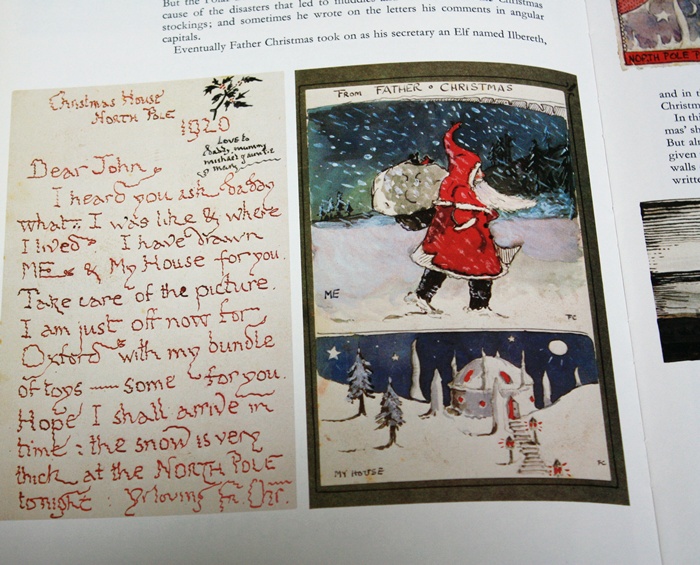 cause of the disasters that led to muddles
stockings; and sometimes he wrote on the letters his comments in angular
capitals.
Eventually Father Christmas took on as his secretary an Elf named Ilbereth,
Christmas House
NORTH POLE
1920
Love to
daddy, mummy
michael & auntie
mary
Dear John,
I heard you ask daddy
what I was like & where
I lived. I have drawn
ME & My House for you.
Take care of the picture.
I am just off now for
Oxford with my bundle
of toys — some for you.
Hope I shall arrive in
time: the snow is very
thick at the NORTH POLE
tonight. Yr loving Fr. Chr.
FROM FATHER CHRISTMAS
ME
FC
MY HOUSE
FC
NORTH POLE
and in
Christm
In thi
mas' sh
But al
given
walls
writte